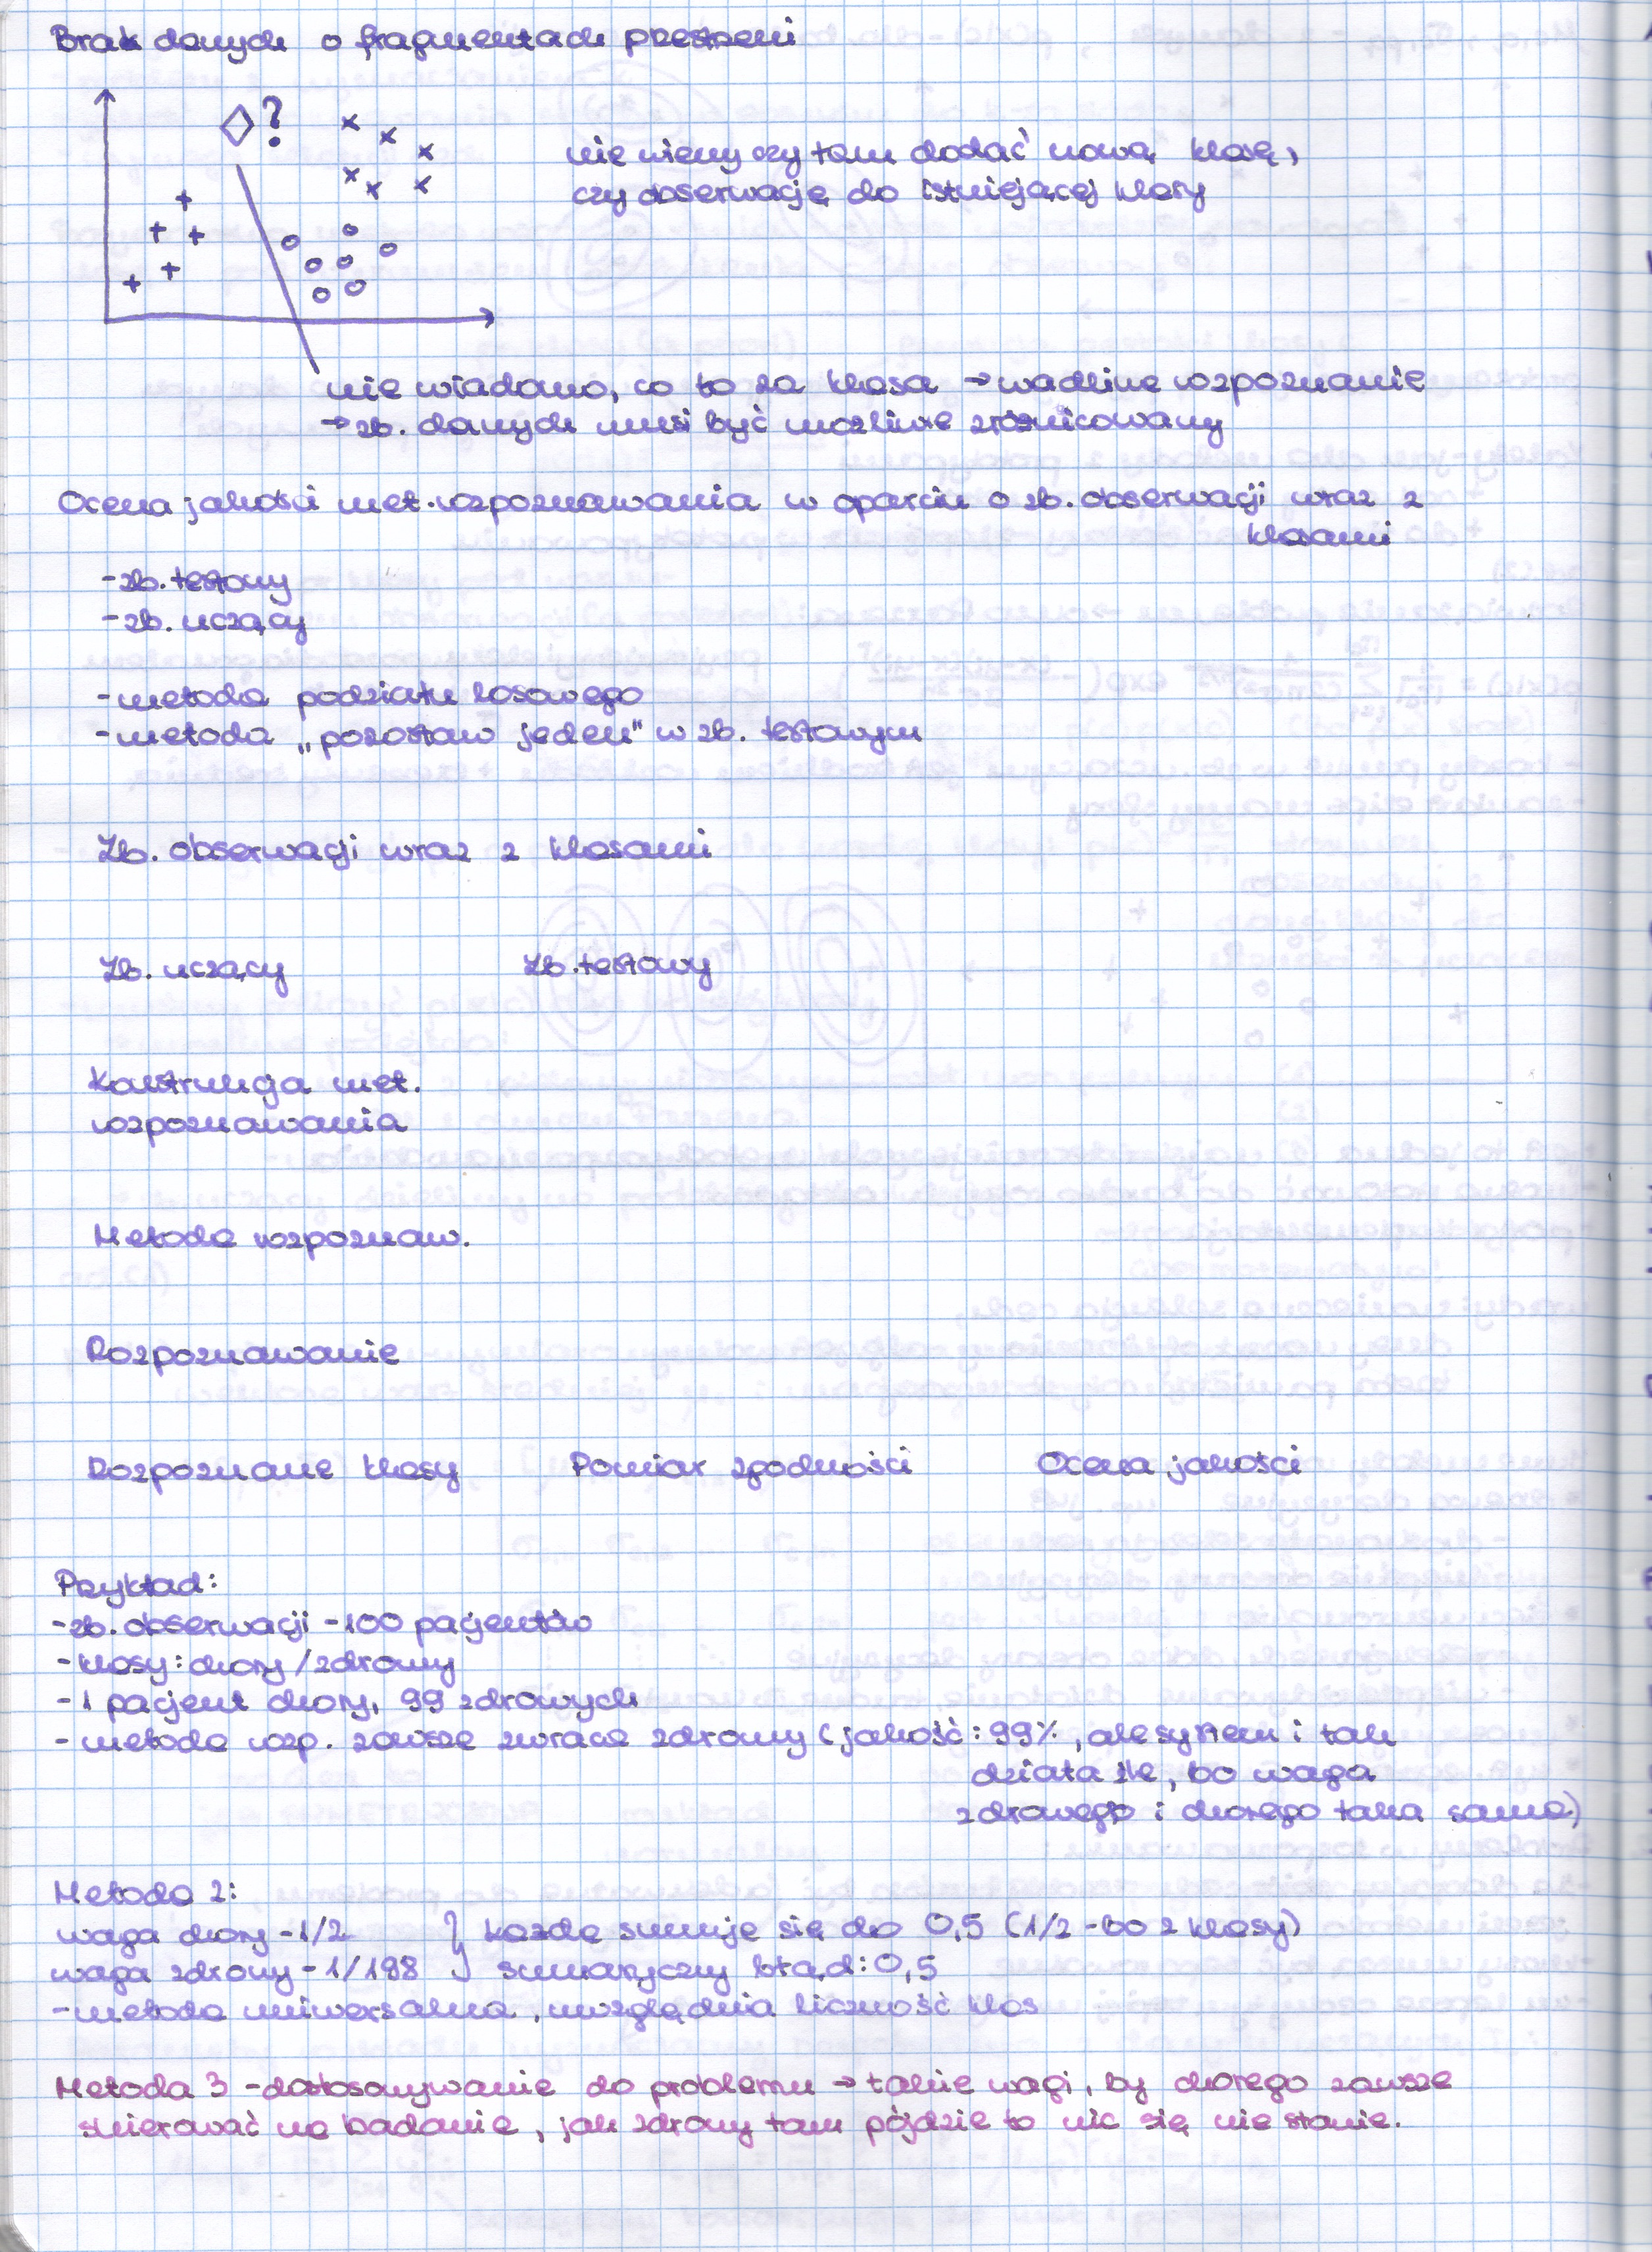 Brak danych o fragmentach przestrzeni
?
nie wiemy czy tam dodać nową klasę,
czy obserwację do istniejącej klasy
nie wiadomo, co to za klasa → wadliwe rozpoznanie
→ zb. danych musi być możliwie zróżnicowany
Ocena jakości met. rozpoznawania w oparciu o zb. obserwacji wraz z
klasami
- zb. testowy
- zb. uczący
- metoda podziału losowego
- metoda „pozostaw jeden" w zb. testowym
Zb. obserwacji wraz z klasami
Zb. uczący Zb. testowy
Konstrukcja met.
rozpoznawania
Metoda rozpoznaw.
Rozpoznawanie
Rozpoznane klasy Pomiar zgodności Ocena jakości
Przykład:
- zb. obserwacji - 100 pacjentów
- klasy: chory / zdrowy
- 1 pacjent chory, 99 zdrowych
- metoda rozp. zawsze zwraca zdrowy (jakość: 99%, ale system i tak
działa źle, bo waga
zdrowego i chorego taka sama)
Metoda 2:
waga chory - 1/2 } każda sumuje się do 0,5 (1/2 - bo 2 klasy)
waga zdrowy - 1/198 sumaryczny błąd: 0,5
- metoda uniwersalna, uwzględnia liczność klas
Metoda 3 - dostosowywanie do problemu → takie wagi, by chorego zawsze
skierować na badanie, jak zdrowy tam pójdzie to nic się nie stanie.